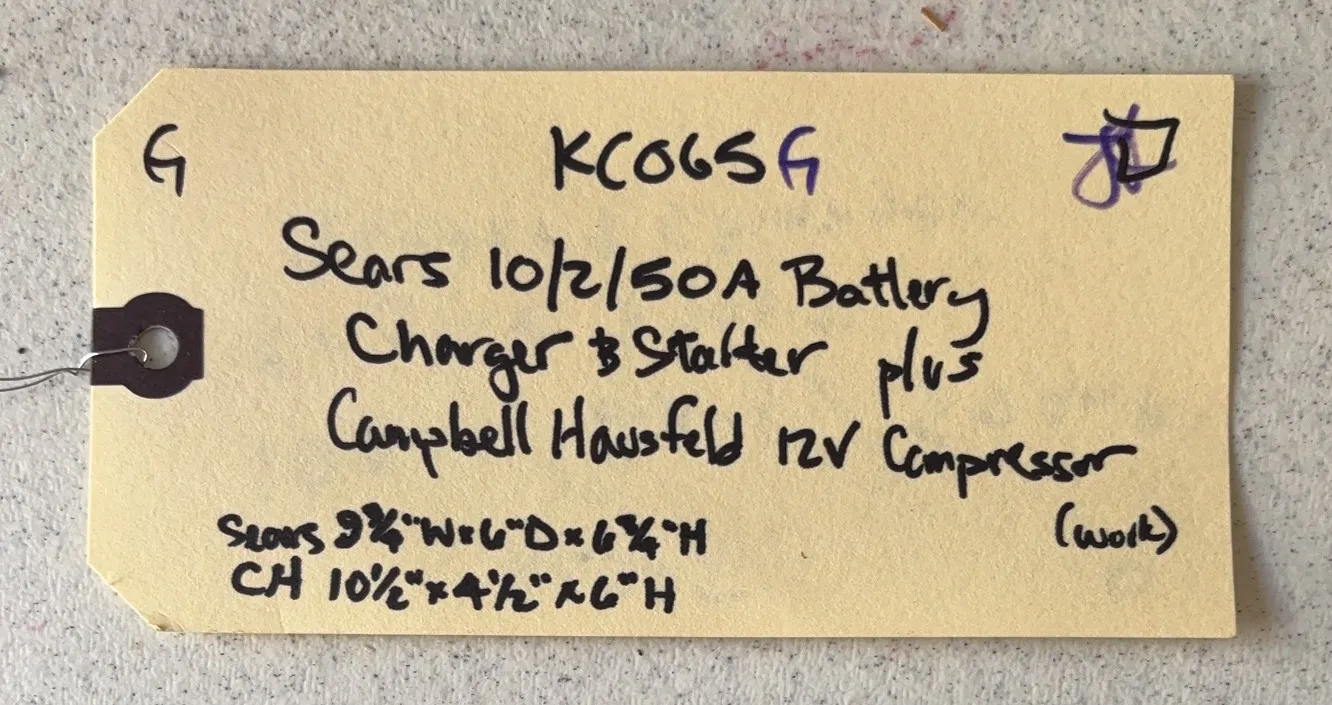 G KC065 G
Sears 10/2/50A Battery
Charger & Starter plus
Campbell Hausfeld 12V Compressor
(work)
Sears 9 3/4" W x 6" D x 6 3/4" H
CH 10 1/2" x 4 1/2" x 6" H